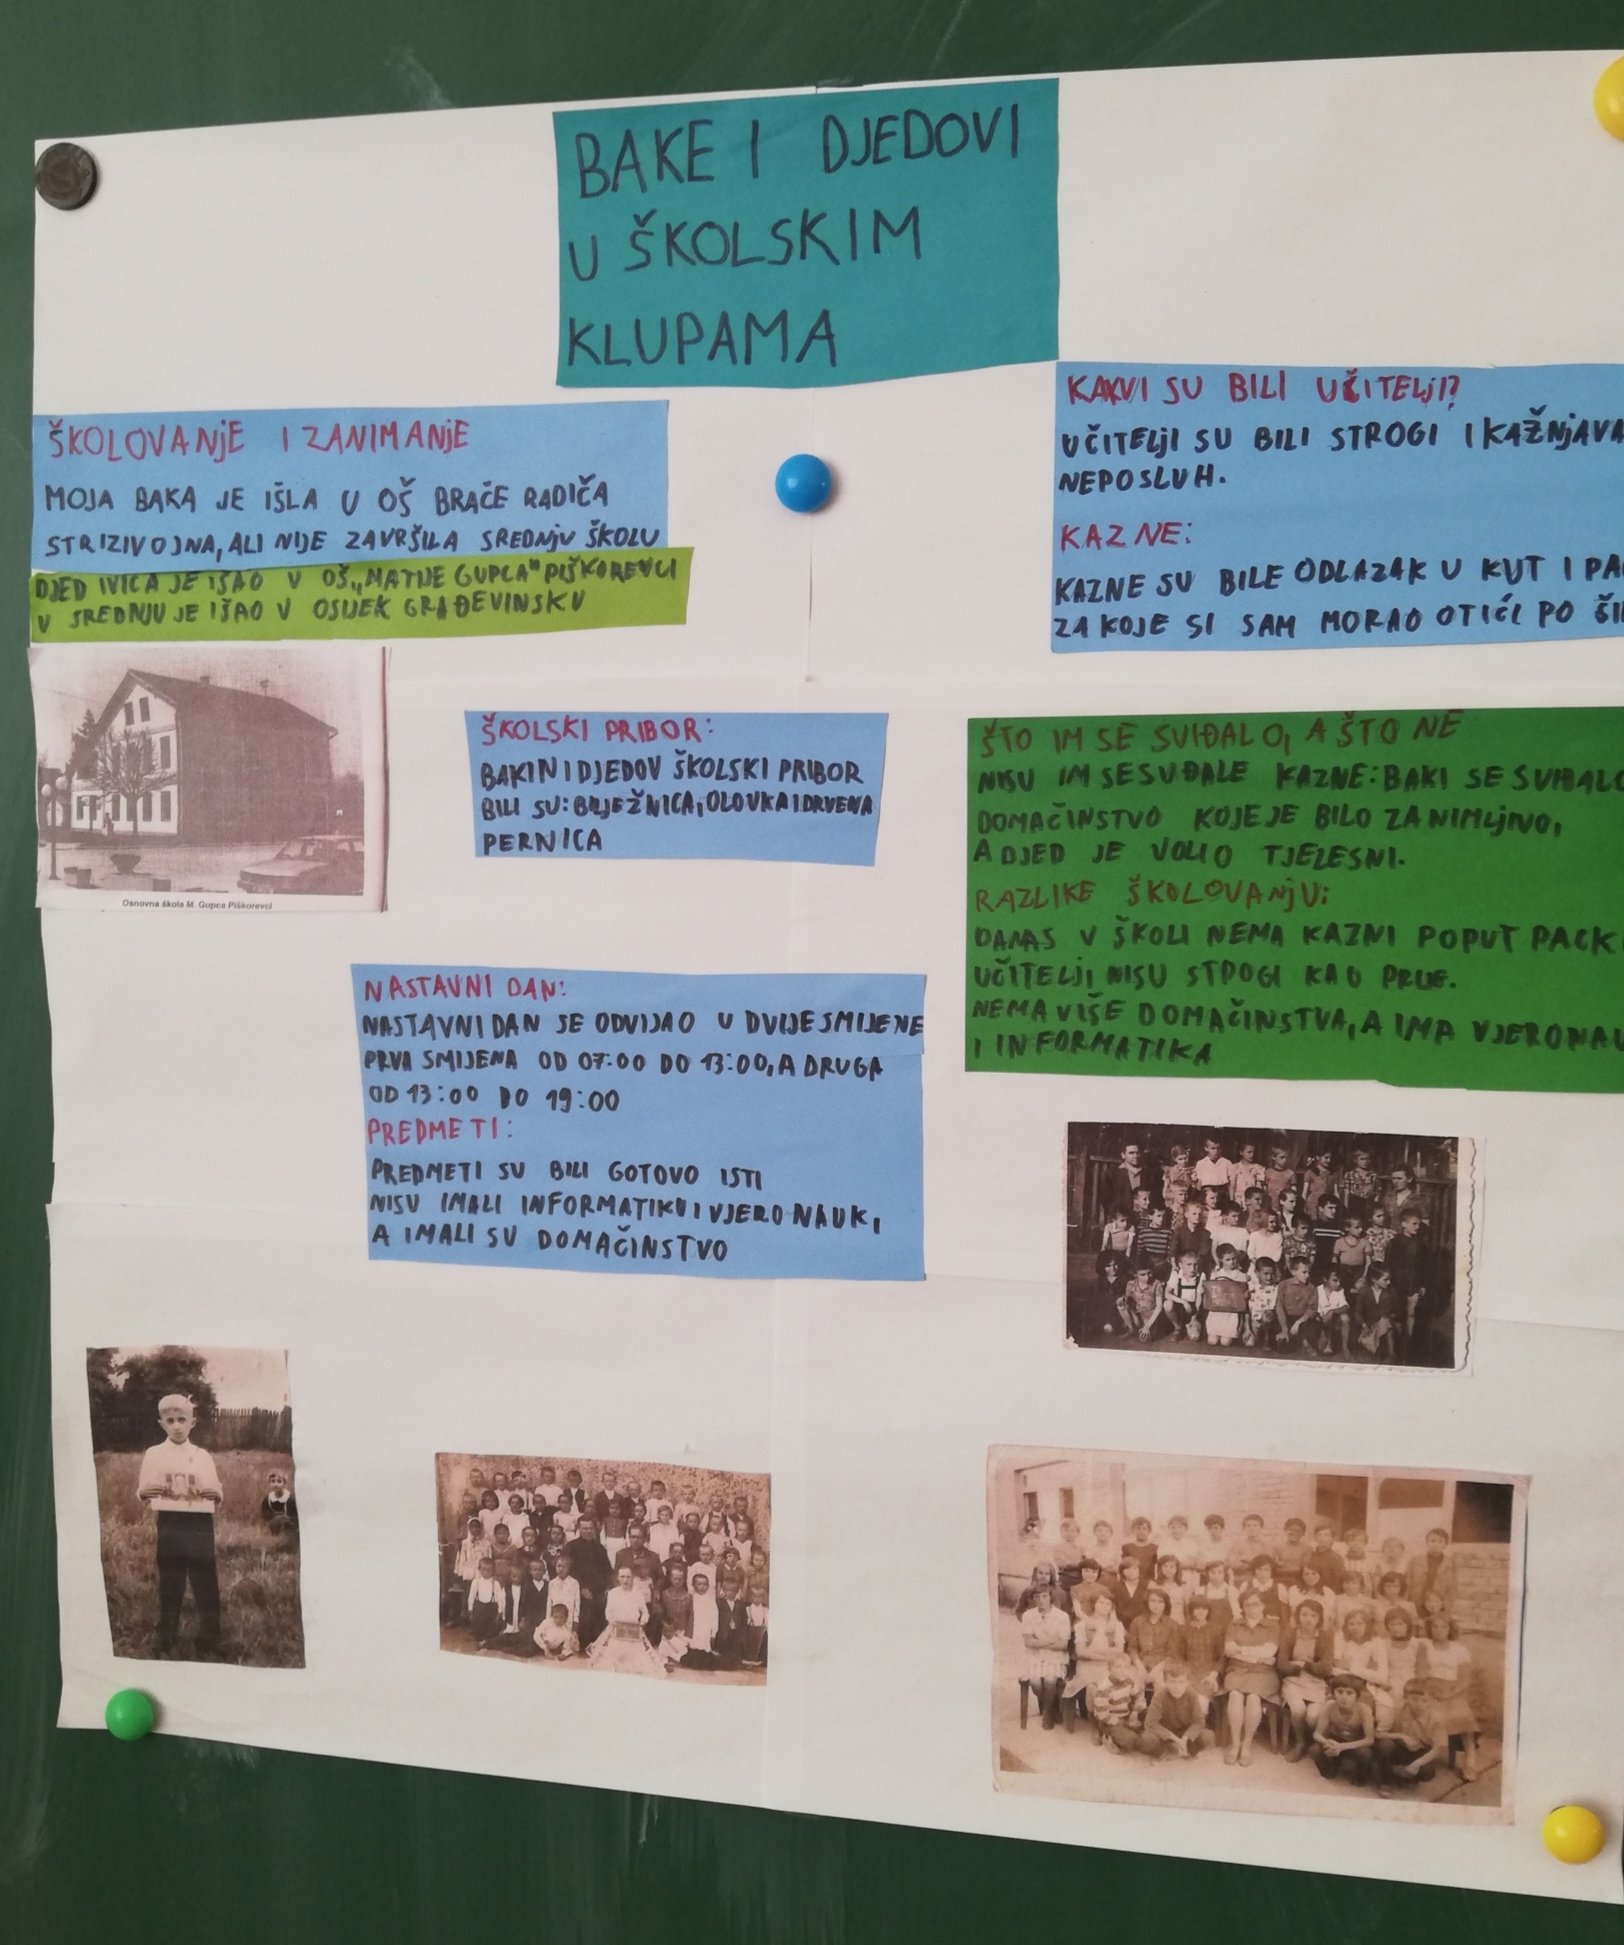 BAKE I DJEDOVI
U ŠKOLSKIM
KLUPAMA
ŠKOLOVANJE I ZANIMANJE
MOJA BAKA JE IŠLA U OŠ BRAČE RADIČA
STRIZIVOJNA, ALI NIJE ZAVRŠILA SREDNJU ŠKOLU
DJED IVICA JE IŠAO V OŠ „MATIJE GUPCA" PIŠKOREVCI
V SREDNJU JE IŠAO V OSIJEK GRAĐEVINSKU
Osnovna škola M. Gupca Piškorevci
ŠKOLSKI PRIBOR:
BAKIN I DJEDOV ŠKOLSKI PRIBOR
BILI SU: BILJEŽNICA, OLOVKA I DRVENA
PERNICA
NASTAVNI DAN:
NASTAVNI DAN SE ODVIJAO U DVIJE SMIJENE
PRVA SMIJENA OD 07:00 DO 13:00, A DRUGA
OD 13:00 DO 19:00
PREDMETI:
PREDMETI SU BILI GOTOVO ISTI
NISU IMALI INFORMATIKU I VJERONAUK,
A IMALI SU DOMAČINSTVO
KAKVI SU BILI UČITELJI?
UČITELJI SU BILI STROGI I KAŽNJAVA
NEPOSLUH.
KAZNE:
KAZNE SU BILE ODLAZAK U KUT I PA
ZA KOJE SI SAM MORAO OTIĆI PO ŠI
ŠTO IM SE SVIĐALO, A ŠTO NE
NISU IM SE SVĐALE KAZNE: BAKI SE SVIĐALO
DOMAČINSTVO KOJE JE BILO ZANIMLJIVO,
A DJED JE VOLIO TJELESNI.
RAZLIKE ŠKOLOVANJU:
DANAS V ŠKOLI NEMA KAZNI POPUT PACK
UČITELJI NISU STROGI KAO PRIJE.
NEMA VIŠE DOMAČINSTVA, A IMA VJERONAU
I INFORMATIKA